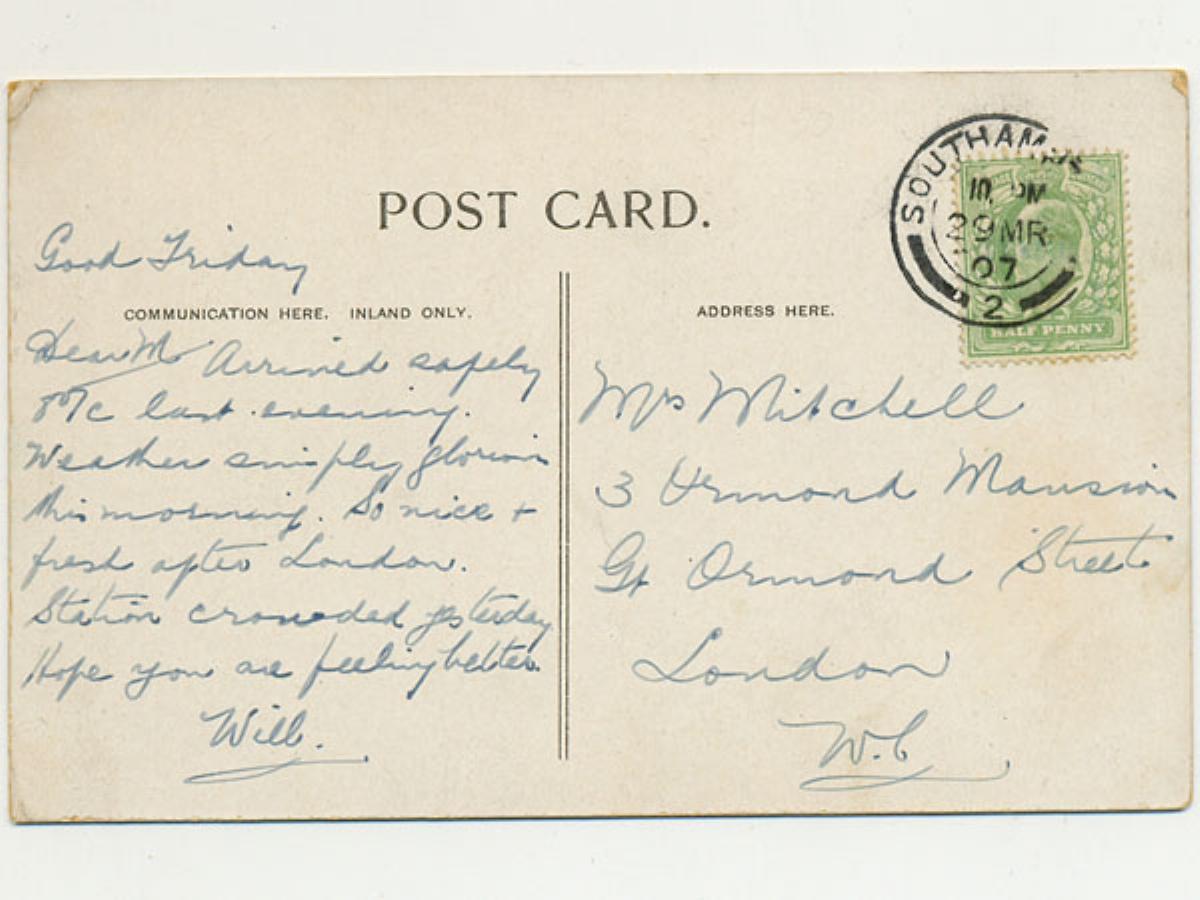 POST CARD.
Good Friday
COMMUNICATION HERE. INLAND ONLY.
Dear M Arrived safely
last evening.
Weather simply glorious
this morning. So nice +
fresh after London.
Station crowded yesterday
Hope you are feeling better.
Will.
ADDRESS HERE.
Mrs Mitchell
3 Ormond Mansions
Gt Ormond Street
London
W.C
SOUTHAMPTON
10. PM
29 MR
07
2
HALF PENNY